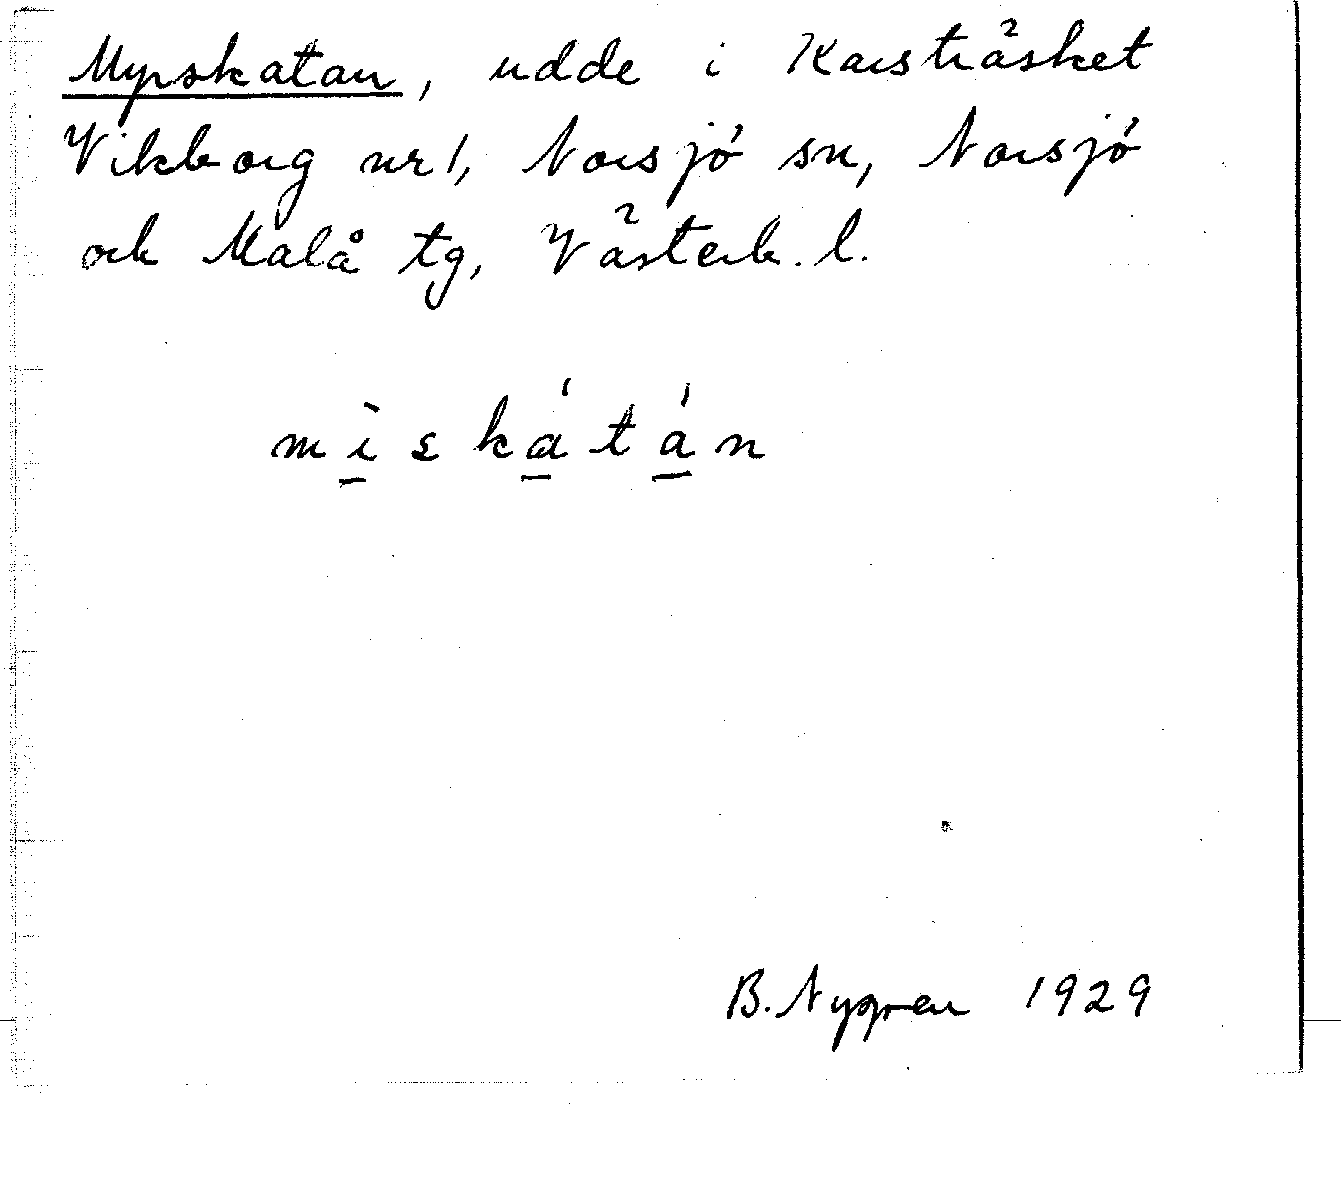 Myrskatan, udde i Karsträsket
Vikborg nr 1, Norsjö sn, Norsjö
och Malå tg, Västerb. l.
mìskátán
B. Nygren 1929